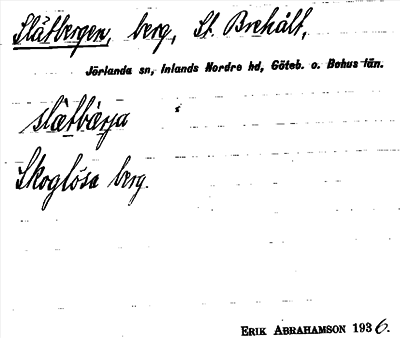 Slätbergen, berg, St. Brehålt,
Jörlanda sn, Inlands Nordre hd, Göteb. o. Bohus län.
slætbærja
Skoglösa berg.
ERIK ABRAHAMSON 1936.